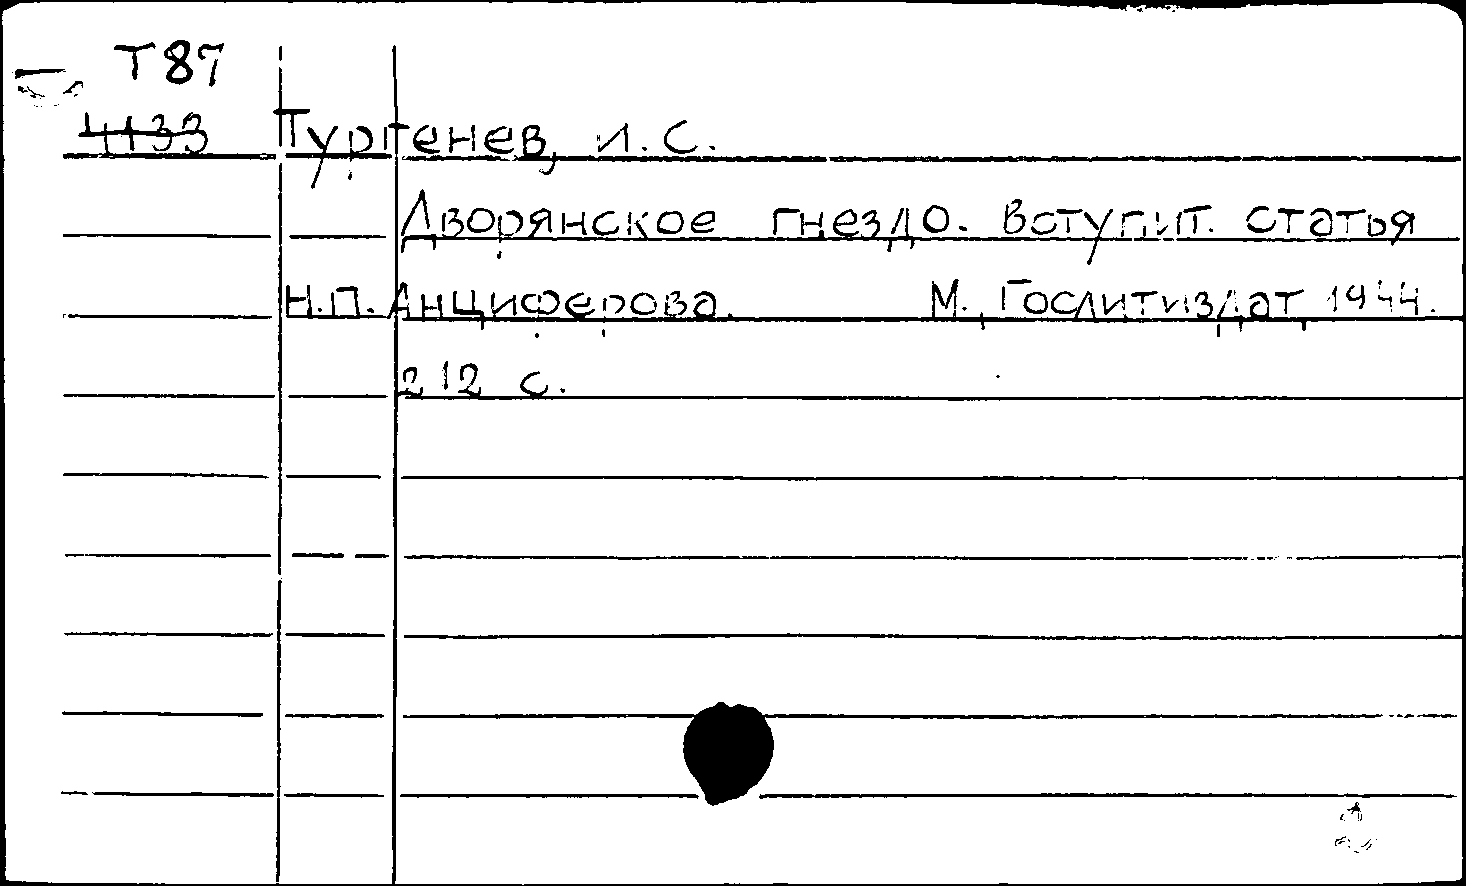 Т87
4133 Тургенев, И. С.
Дворянское гнездо. Вступит. статья
Н.П. Анциферова. М., Гослитиздат, 1944.
212 с.